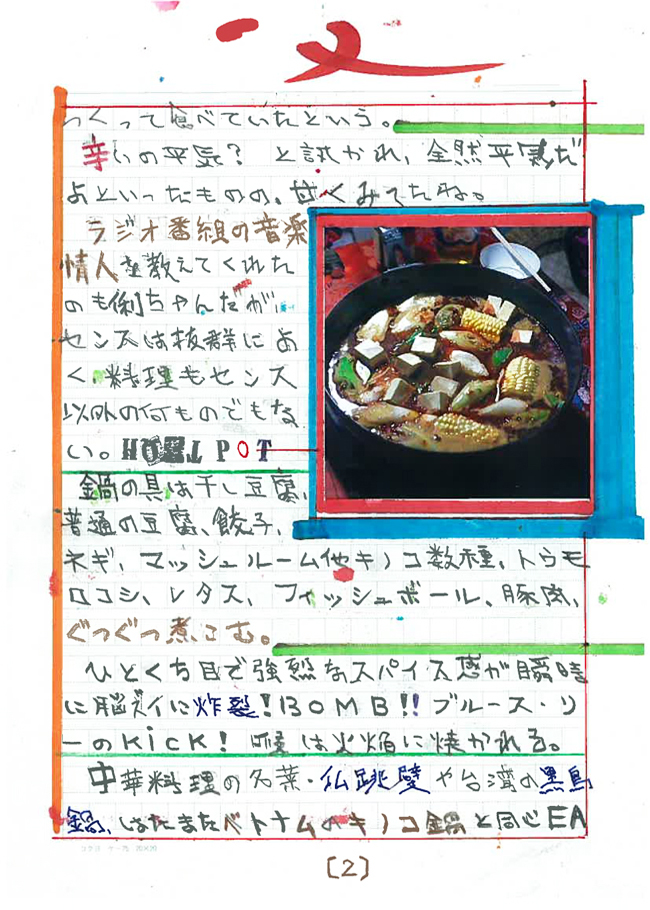 つくって食べていたという。
辛いの平気? と訊かれ、全然平気だ
よといったものの、甘くみてたね。
ラジオ番組の音楽
情人を教えてくれた
のも俐ちゃんだが、
センスは抜群によ
く、料理もセンス
以外の何ものでもな
い。HOT POT
鍋の具は干し豆腐、
普通の豆腐、餃子、
ネギ、マッシュルーム他キノコ数種、トウモ
ロコシ、レタス、フィッシュボール、豚肉、
ぐつぐつ煮こむ。
ひとくち目で強烈なスパイス感が瞬時
に脳ズイに炸裂!BOMB!! ブルース・リ
ーのKICK! 喉は火焔に焼かれる。
中華料理の名菜・仏跳壁や台湾の黒鳥
鍋、はたまたベトナムのキノコ鍋と同じEA
[2]